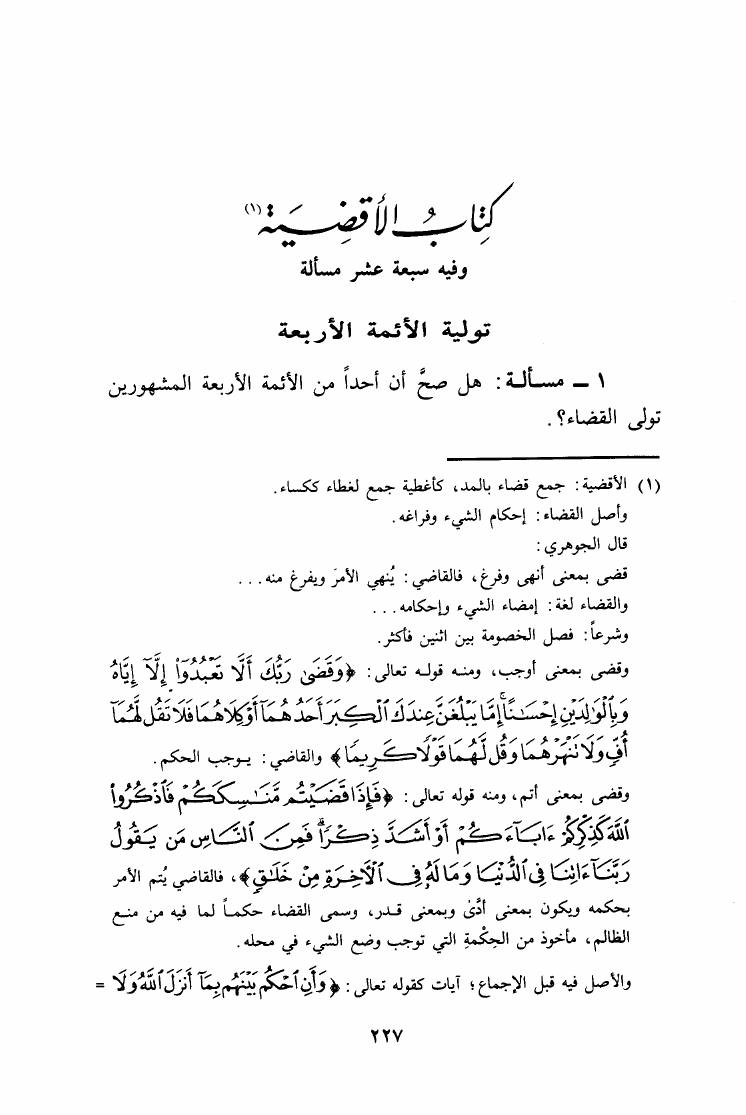 كِتَابُ الأَقضِيَة (١)
وفيه سبعة عشر مسألة
تولية الأئمة الأربعة
١ ـ مسألة: هل صحَّ أن أحداً من الأئمة الأربعة المشهورين
تولى القضاء؟.
(١) الأقضية: جمع قضاء بالمد، كأغطية جمع لغطاء ككساء.
وأصل القضاء: إحكام الشيء وفراغه.
قال الجوهري:
قضى بمعنى أنهى وفرغ، فالقاضي: يُنهي الأمرَ ويفرغ منه...
والقضاء لغة: إمضاء الشيء وإحكامه...
وشرعاً: فصل الخصومة بين اثنين فأكثر.
وقضى بمعنى أوجب، ومنه قوله تعالى: ﴿وَقَضَىٰ رَبُّكَ أَلَّا تَعْبُدُوٓا۟ إِلَّآ إِيَّاهُ
وَبِٱلْوَٰلِدَيْنِ إِحْسَٰنًا ۚ إِمَّا يَبْلُغَنَّ عِندَكَ ٱلْكِبَرَ أَحَدُهُمَآ أَوْ كِلَاهُمَا فَلَا تَقُل لَّهُمَآ
أُفٍّ وَلَا نَنْهَرْهُمَا وَقُل لَّهُمَا قَوْلًا كَرِيمًا﴾ والقاضي: يوجب الحكم.
وقضى بمعنى أتم، ومنه قوله تعالى: ﴿فَإِذَا قَضَيْتُم مَّنَٰسِكَكُمْ فَٱذْكُرُوا۟
ٱللَّهَ كَذِكْرِكُمْ ءَابَآءَكُمْ أَوْ أَشَدَّ ذِكْرًا ۗ فَمِنَ ٱلنَّاسِ مَن يَقُولُ
رَبَّنَآ ءَاتِنَا فِى ٱلدُّنْيَا وَمَا لَهُۥ فِى ٱلْآخِرَةِ مِنْ خَلَٰقٍ﴾، فالقاضي يُتم الأمر
بحكمه ويكون بمعنى أدَّىٰ وبمعنى قدر، وسمى القضاء حكماً لما فيه من منع
الظالم، مأخوذ من الحِكْمةِ التي توجب وضع الشيء في محله.
والأصل فيه قبل الإجماع؛ آيات كقوله تعالى: ﴿وَأَنِ ٱحْكُم بَيْنَهُم بِمَآ أَنزَلَ ٱللَّهُ وَلَا =
٢٢٧